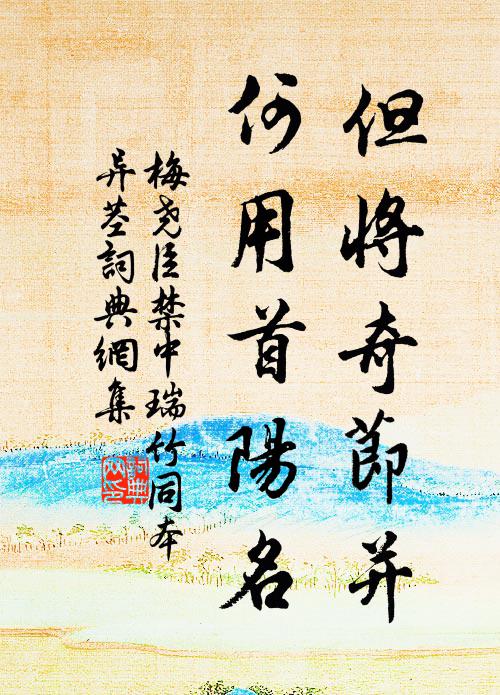 但將奇節并
何用首陽名
梅堯臣禁中瑞竹同本
异莖詞典網集